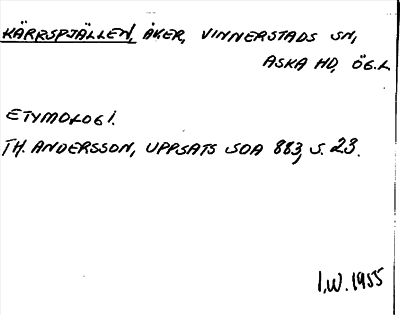 KÄRRSPJÄLLEN, ÅKER, VINNERSTADS SN,
ASKA HD, ÖG.L.
ETYMOLOGI.
TH. ANDERSSON, UPPSATS SOA 883, S. 23.
I.W. 1955